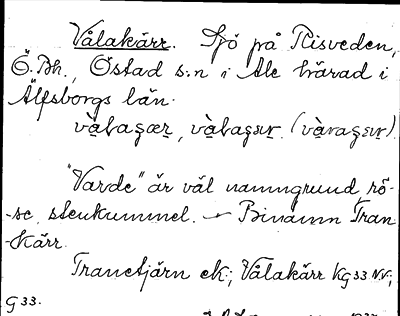 Vålakärr. Sjö på Risveden,
Ö. Bh., Östad s:n i Ale härad i
Älfsborgs län.
"Varde" är väl namngrund, rö-
-se, stenkummel. Binamn Tran-
-kärr.
Tranetjärn ek; Vålakärr Kg 33 NV;
G 33.